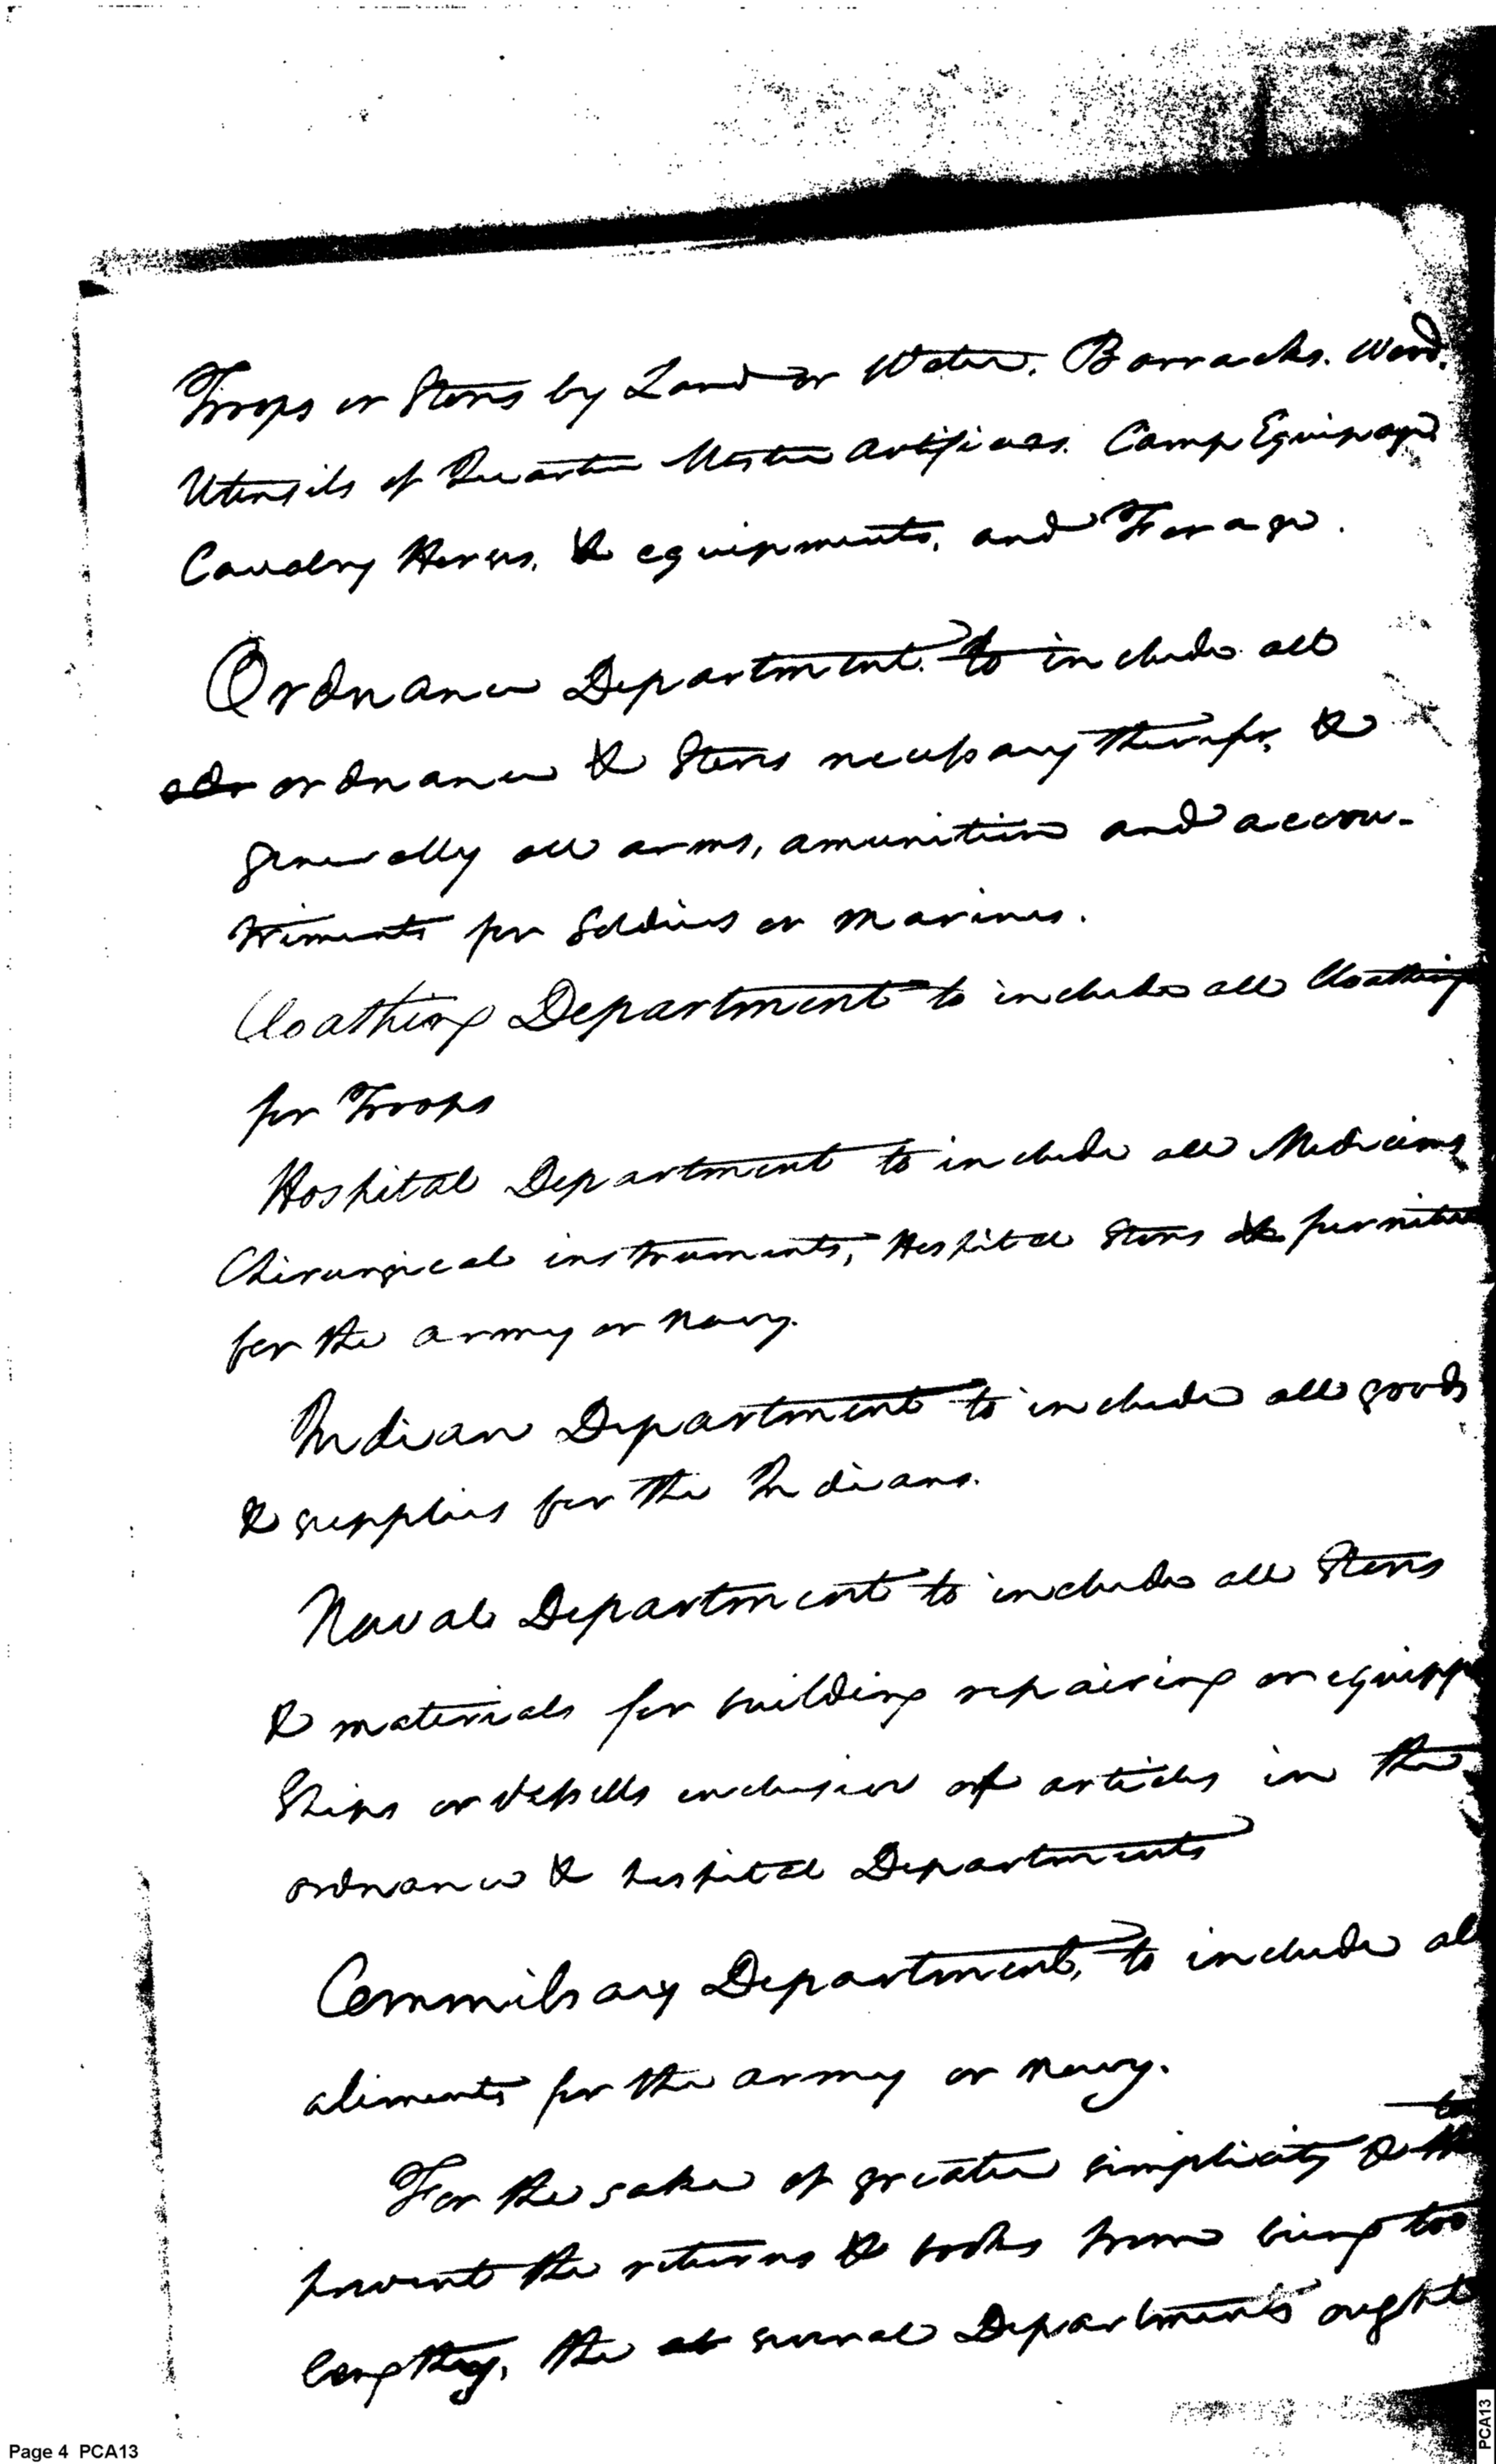 Troops or Stores by Land or Water. Barracks. Wood.
Utensils of Quarter Master Artificers. Camp Equipage
Cavalry Horses, & equipments, and Forage.
Ordnance Department. to include all
ordnance & Stores necessary therefor, &
generally all arms, amunition and accou-
triments for Soldiers or Marines.
Cloathing Department to include all Cloathing
for Troops
Hospital Department to include all Medicines
Chirurgical instruments, Hospital Stores & furniture
for the army or Navy.
Indian Department to include all goods
& supplies for the Indians.
Naval Department to include all Stores
& materials for building repairing or equipp
Ships or Vessells exclusive of articles in the
ordnance & hospital Departments
Commissary Department, to include al
aliments for the army or Navy.
For the sake of greater simplicity & to
prevent the returns & books from being too
lengthy, the several Departments ought
Page 4 PCA13
PCA13